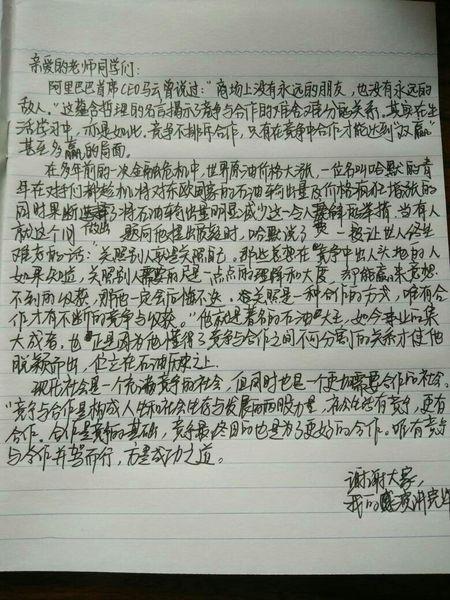 亲爱的老师同学们：
阿里巴巴首席CEO马云曾说过：“商场上没有永远的朋友，也没有永远的
敌人。”这蕴含哲理的名言揭示了竞争与合作的难舍难分的关系。其实在生
活学习中，亦是如此，竞争不排斥合作，只有在竞争中合作才能达到“双赢”
甚至多赢的局面。
在多年前的一次金融危机中，世界原油价格大涨，一位名叫哈默的青
年在对手们都趁机将对东欧国家的石油输出量及价格有所提涨的
同时果断选择了将石油输出量明显减少这一令人费解的举措。当有人
就这个问题向他提出质疑时，哈默说了一段让世人终生
难忘的话：“关照别人就是关照自己。那些总想在竞争中出人头地的人
如果知道，关照别人需要的只是一点点的理解和大度，却能赢来意想
不到的收获，那他一定会后悔不迭。关照是一种合作的方式，唯有合
作才有不断的竞争与收获。”他就是著名的石油大王，如今事业的集
大成者，也正是因为他懂得了竞争与合作之间不可分割的关系才使他
脱颖而出，伫立在石油历史之上。
现代社会是一个充满竞争的社会，但同时也是一个更加需要合作的社会。
“竞争与合作是构成人生和社会生存与发展的两股力量，社会生活有竞争，更有
合作。合作是竞争的基础，竞争最终目的也是为了更好的合作。唯有竞争
与合作并驾而行，方是成功之道。
谢谢大家，
我的演讲完毕